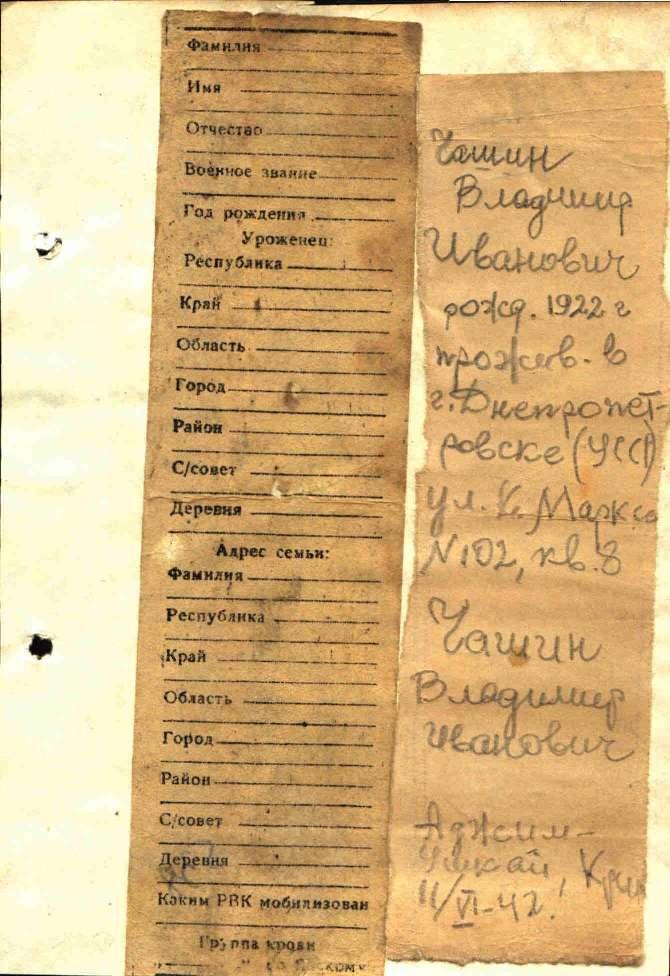 Фамилия
Имя
Отчество
Военное звание
Год рождения
Уроженец:
Республика
Край
Область
Город
Район
С/совет
Деревня
Адрес семьи:
Фамилия
Республика
Край
Область
Город
Район
С/совет
Деревня
Каким РВК мобилизован
Группа крови
Чашин
Владимир
Иванович
рожд. 1922 г
прожив. в
г. Днепропет-
ровске (УССР)
ул. К. Маркса
N102, кв. 8
Чашин
Владимир
Иванович
Аджим-
Ушкай, Крым
11/VI-42.